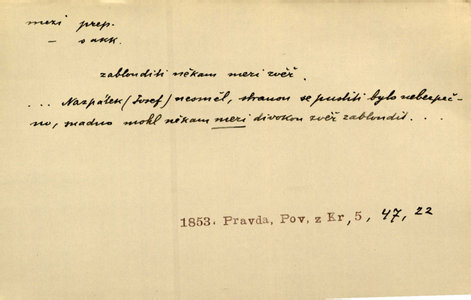 mezi prep.
– s akk.
zablouditi někam mezi zvěř.
... Nazpátek (Josef) nesměl, stranou se pustiti bylo nebezpeč-
no, snadno mohl někam mezi divokou zvěř zabloudit...
1853. Pravda, Pov. z Kr, 5, 47, 22